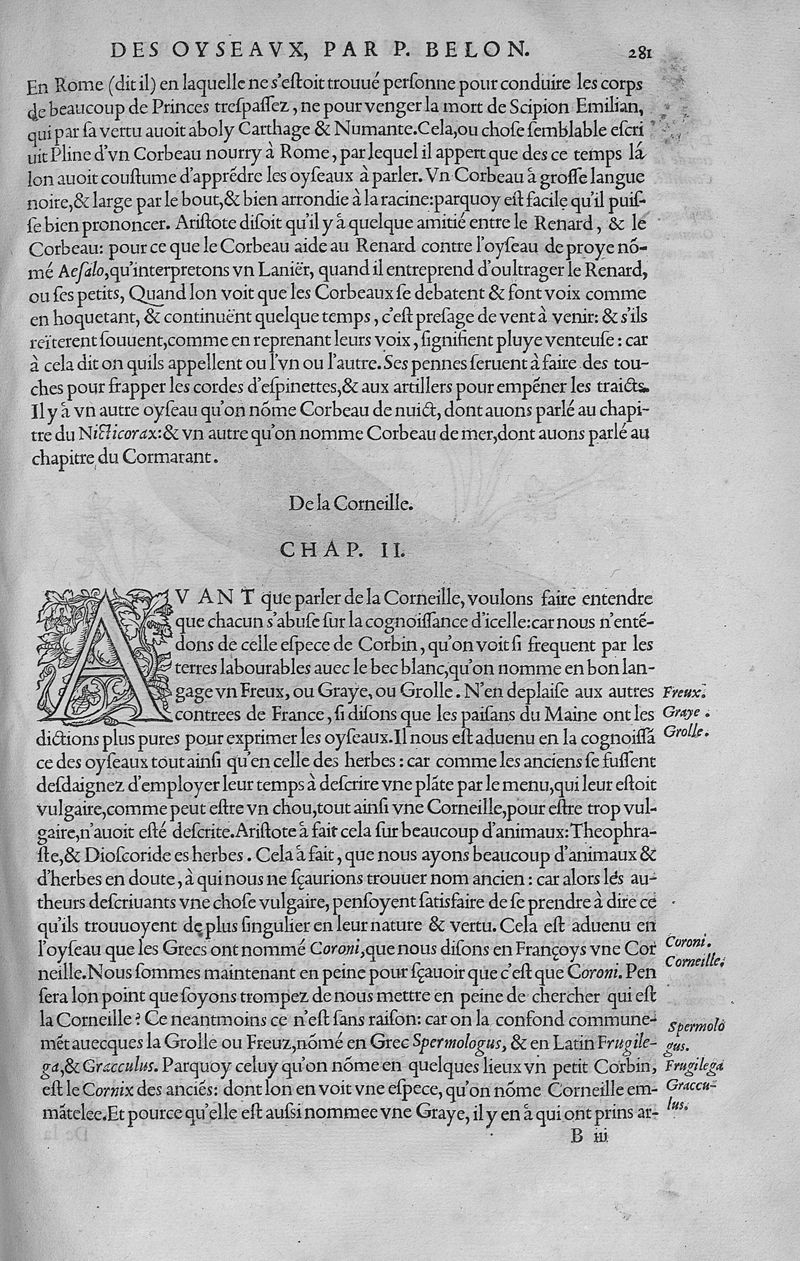 DES OYSEAVX, PAR P. BELON. 281
En Rome (dit il) en laquelle ne s'eſtoit trouué perſonne pour conduire les corps
de beaucoup de Princes treſpaſſez, ne pour venger la mort de Scipion Emilian,
qui par ſa vertu auoit aboly Carthage & Numante.Cela,ou choſe ſemblable eſcri
uit Pline d'vn Corbeau nourry à Rome, par lequel il appert que des ce temps lá
lon auoit couſtume d'apprẽdre les oyſeaux à parler. Vn Corbeau à groſſe langue
noire,& large par le bout,& bien arrondie à la racine:parquoy eſt facile qu'il puiſ-
ſe bien prononcer. Ariſtote diſoit qu'il y à quelque amitié entre le Renard, & le
Corbeau: pour ce que le Corbeau aide au Renard contre l'oyſeau de proye nõ-
mé Aeſalo,qu'interpretons vn Laniër, quand il entreprend d'oultrager le Renard,
ou ſes petits, Quand lon voit que les Corbeaux ſe debatent & font voix comme
en hoquetant, & continuënt quelque temps, c'eſt preſage de vent à venir: & s'ils
reïterent ſouuent,comme en reprenant leurs voix, ſignifient pluye venteuſe: car
à cela dit on quils appellent ou l'vn ou l'autre. Ses pennes ſeruent à faire des tou-
ches pour frapper les cordes d'eſpinettes,& aux artillers pour empẽner les traicts.
Il y à vn autre oyſeau qu'on nõme Corbeau de nuict, dont auons parlé au chapi-
tre du Nicticorax:& vn autre qu'on nomme Corbeau de mer,dont auons parlé au
chapitre du Cormarant.
De la Corneille.
CHAP. II.
AVANT que parler de la Corneille, voulons faire entendre
que chacun s'abuſe ſur la cognoiſſance d'icelle:car nous n'entẽ-
dons de celle eſpece de Corbin, qu'on voit ſi frequent par les
terres labourables auec le bec blanc,qu'on nomme en bon lan-
gage vn Freux, ou Graye, ou Grolle. N'en deplaiſe aux autres
Freux.
contrees de France, ſi diſons que les paiſans du Maine ont les
Graye.
dictions plus pures pour exprimer les oyſeaux.Il nous eſt aduenu en la cognoiſſã
Grolle.
ce des oyſeaux tout ainſi qu'en celle des herbes: car comme les anciens ſe fuſſent
deſdaignez d'employer leur temps à deſcrire vne plãte par le menu,qui leur eſtoit
vulgaire,comme peut eſtre vn chou,tout ainſi vne Corneille,pour eſtre trop vul-
gaire,n'auoit eſté deſcrite.Ariſtote à fait cela ſur beaucoup d'animaux:Theophra-
ſte,& Dioſcoride es herbes. Cela à fait, que nous ayons beaucoup d'animaux &
d'herbes en doute, à qui nous ne ſçaurions trouuer nom ancien: car alors les au-
theurs deſcriuants vne choſe vulgaire, penſoyent ſatisfaire de ſe prendre à dire ce
qu'ils trouuoyent de plus ſingulier en leur nature & vertu. Cela eſt aduenu en
l'oyſeau que les Grecs ont nommé Coroni,que nous diſons en Françoys vne Cor
Coroni.
neille.Nous ſommes maintenant en peine pour ſçauoir que c'eſt que Coroni. Pen
Corneille.
ſera lon point que ſoyons trompez de nous mettre en peine de chercher qui eſt
la Corneille? Ce neantmoins ce n'eſt ſans raiſon: car on la confond commune-
Spermolo
mẽt auecques la Grolle ou Freuz,nõmé en Grec Spermologus, & en Latin Frugile-
gus.
ga,& Gracculus. Parquoy celuy qu'on nõme en quelques lieux vn petit Corbin,
Frugilega
eſt le Cornix des anciẽs: dont lon en voit vne eſpece, qu'on nõme Corneille em-
Graccu-
mãtelee.Et pource qu'elle eſt auſsi nommee vne Graye, il y en à qui ont prins ar-
lus.
B iii